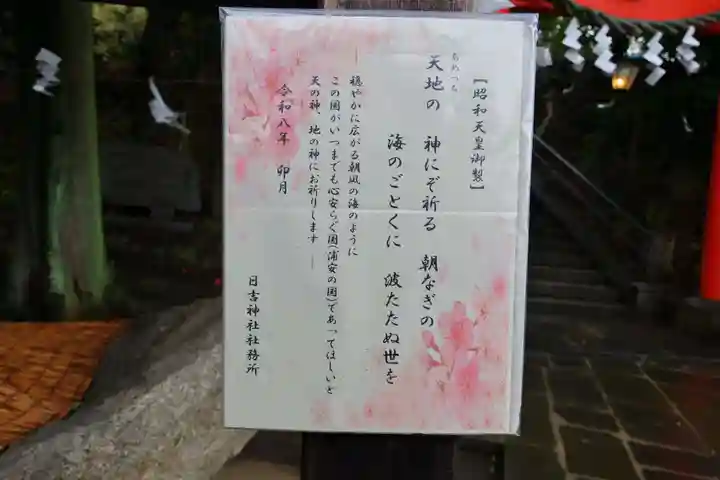 【昭和天皇御製】
あめつち
天地の　神にぞ祈る　朝なぎの
海のごとくに　波たたぬ世を
穏やかに広がる朝凪の海のように
この国がいつまでも心安らぐ国(浦安の国)であってほしいと
天の神、地の神にお祈りします　―
令和八年　卯月
日吉神社社務所